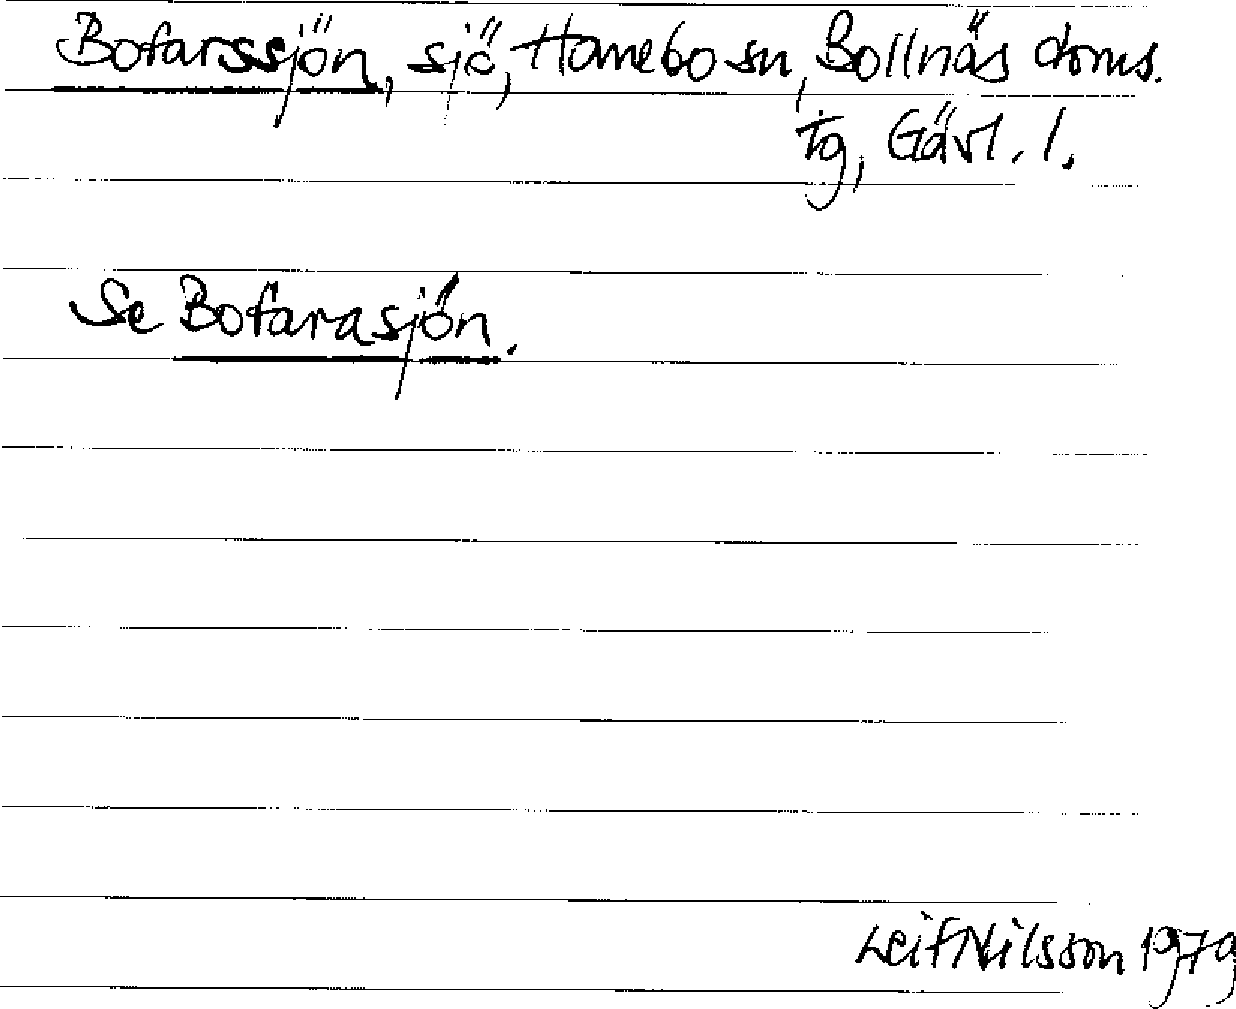 Bofarssjön, sjö, Hanebo sn, Bollnäs doms.
tg, Gävl. l.
Se Bofarasjön.
Leif Nilsson 1979